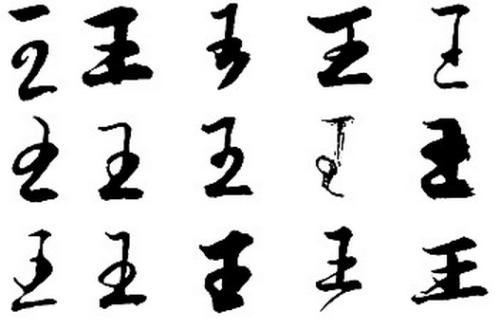 王王王王王
王王王王王
王王王王王